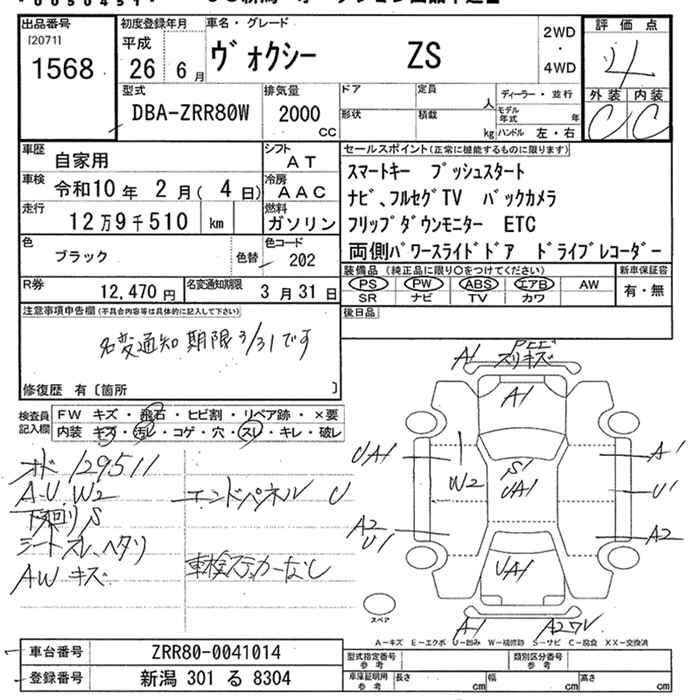 出品番号
[2071]
1568
初度登録年月
平成
26 6月
車名・グレード
ヴォクシー ZS
2WD
・
4WD
評価点
4
外装 内装
C C
型式
DBA-ZRR80W
排気量
2000
cc
ドア
形状
定員
人
積載
kg
ディーラー・並行
モデル年式 年
ハンドル 左・右
車歴
自家用
シフト
AT
車検
令和10年 2月( 4日)
冷房
AAC
走行
12万9千510 km
燃料
ガソリン
色
ブラック
色替
色コード
202
R券
12,470円
名変通知期限
3月31日
セールスポイント(正常に機能するものに限ります)
スマートキー プッシュスタート
ナビ、フルセグTV バックカメラ
フリップダウンモニター ETC
両側パワースライドドア ドライブレコーダー
装備品(純正品に限り○をつけてください)
PS PW ABS エアB AW
SR ナビ TV カワ
新車保証書
有・無
後日品
注意事項申告欄(不具合内容等は具体的に記入して下さい)
名変通知期限3/31です
修復歴 有〔箇所 〕
検査員記入欄
FW キズ・飛石・ヒビ割・リペア跡・×要
内装 キズ・汚レ・コゲ・穴・スレ・キレ・破レ
オド 129511
A-U W2
下廻り S
シートスレ、ヘタリ
AW キズ
エンドパネル U
車検ステッカーなし
A1 スリキズ
A1
UA1
W2
S1
UA1
A1
U1
A2
U1
A2
UA1
A1
スペア
A-キズ E-エクボ U-凹み W-補修跡 S-サビ C-腐食 XX-交換済
車台番号
ZRR80-0041014
登録番号
新潟 301 る 8304
型式指定番号
参考
類別区分番号
参考
車庫証明用
参考
長さ cm
幅 cm
高さ cm